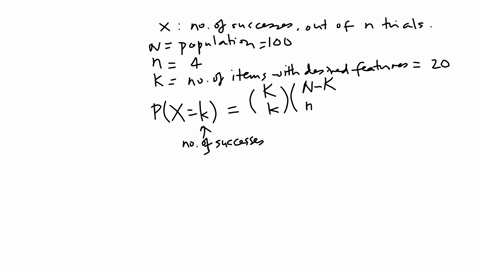 X : no. of successes, out of n trials.
N = population = 100
n = 4
K = no. of items with desired features = 20
P(X=k) = (K k)(N-K n
no. of successes